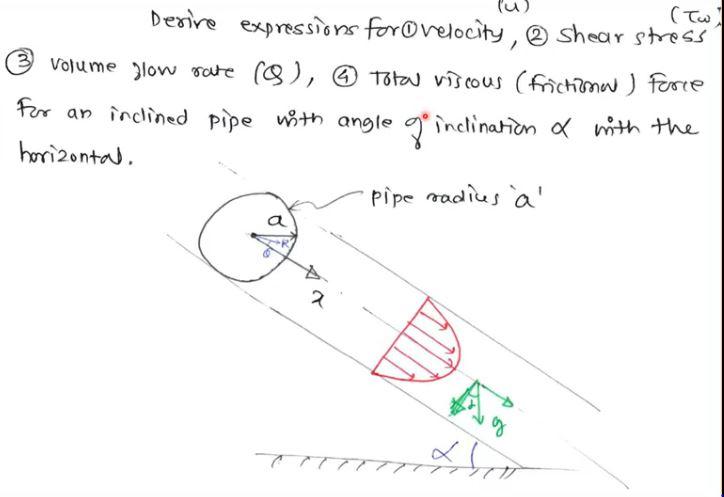 (u)
Derive expressions for ① velocity, ② shear stress (τω)
③ volume flow rate (Q), ④ Total viscous (frictional) Force
For an inclined pipe with angle of inclination α with the
horizontal.
pipe radius 'a'
a
R
θ
x
α
g
α